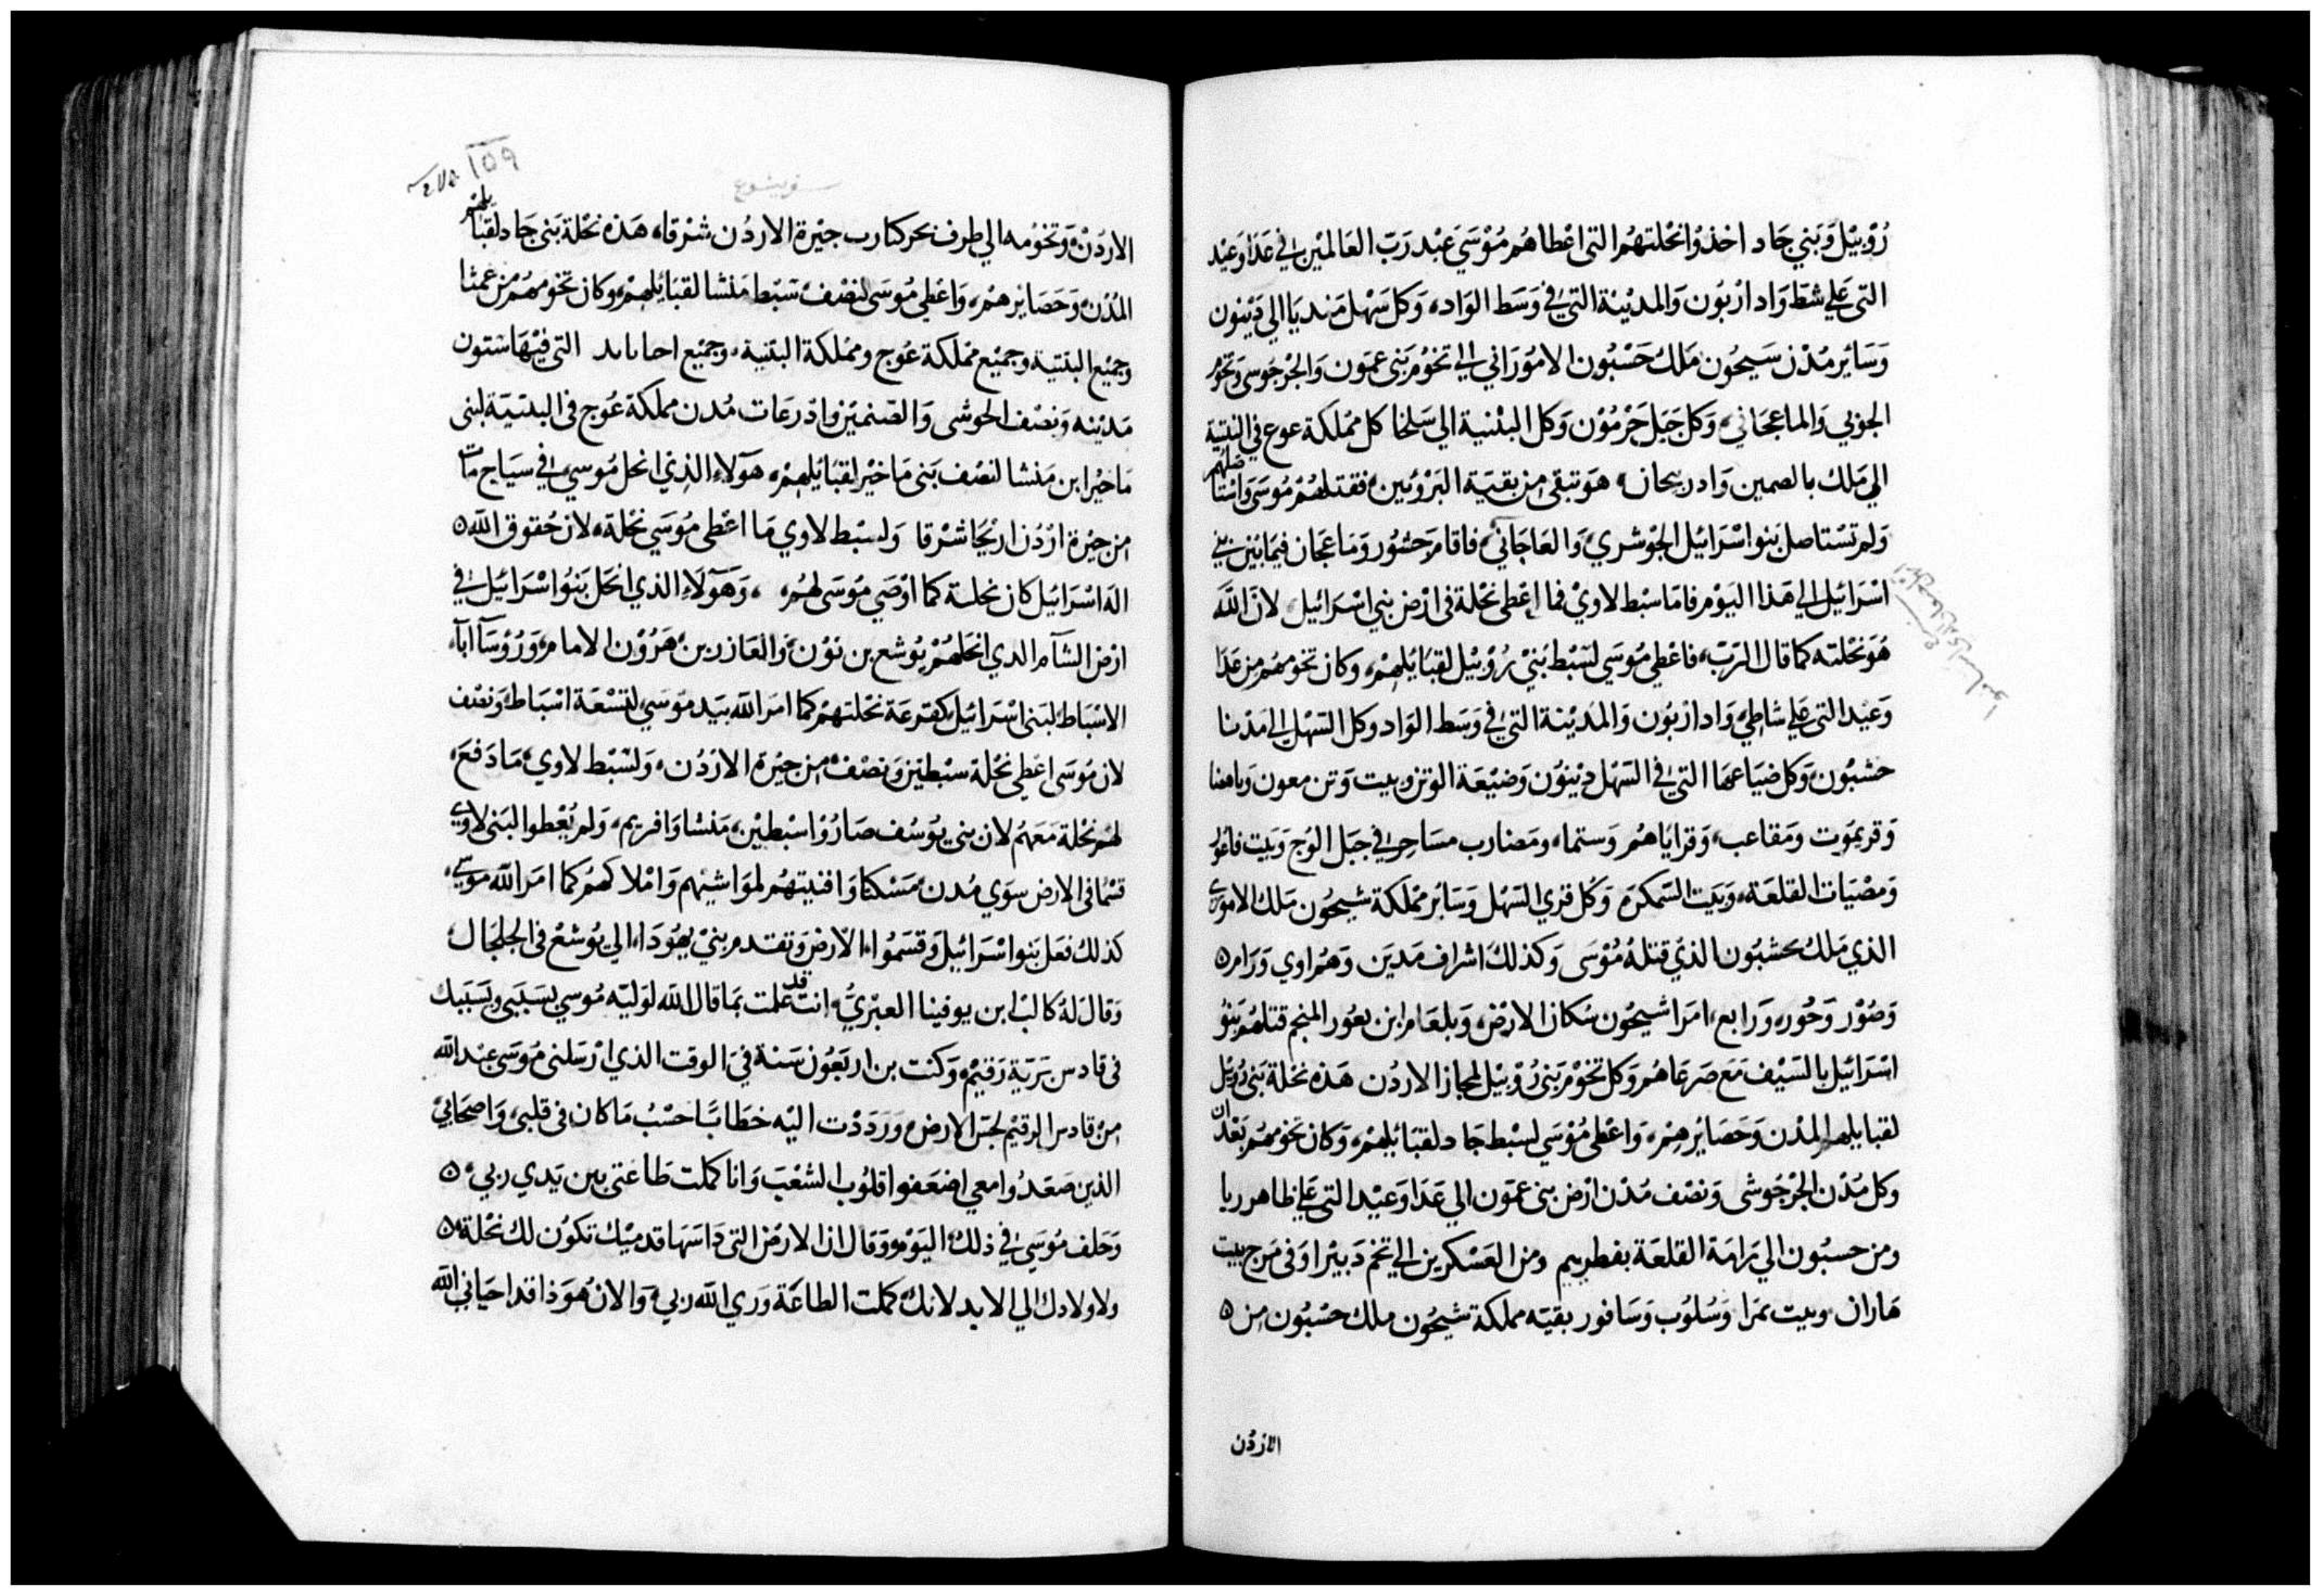 رُوْبيْل وَبَني جَاد اخذوُا نحْلتهُم التى اعْطاهُم مُوْسَيَ عبْد رَبّ العَالميْن في عَدَا وَعيْد
التى عَلي شطَ وَاد ارْبُون وَالمديْنة التي في وَسَط الوَاد، وَكل سَهْل مَنديَا الي دَيْنون
وَسَائِر مُدْن سَيحُون مَلكُ حَسْبُون الامُوْرَاني الي تخوُم بَنى عمَوُن وَالجْرجُوسى وَتخوُم
الجوْبي وَالماعجَاني، وَكل جَبَل حَرْمُوْن وَكل البثْنية الي سَلخا كل ممْلكة عوع في البثنية
الي مَلك بالصمين وَادريحان، هوَ تبقى مِن بَقيَة البَرْوُئين، فقتلهُمْ مُوسَى وَاسْتاصلهم
وَلم تسْتاصل بَنو اسْرَائيل الجوْشري، وَالعَاجَاني، فاقام حَشُور وَمَاعجَان فيمَا بَيْن بني
اسْرَائيل الي هَذا اليَوْم فامَا سبْط لاويْ فما اعْطى نحْلة فى ارْض بني اسْرَائيل، لانّ اللّهَ
هُوَ نحْلته كما قال الرَبّ، فاعْطي مُوسَي لسَبْط بَنيْ رُوْبيْل لقبَايلهمْ، وكان تخوُمهُم مِن عَدَا
وَعيْد التى عَلي شاطي، وَاد ارْبُون وَالمَديْنة التي في وَسَط الوَاد وكل السَهْل الي مَدْنا
حسْبُون، وَكل ضيَاعهَا التي في السَهْل ديْنوُن وَضيْعَة الوتن وبيت وَتن معون وياهصا
وَقريموَت وَمَقاعب، وَقرايَاهُم وَستما، ومَضارب مسَاحر في جَبَل الوَج وَبَيت فاغوُر
وَمصْيَات القلعَة، وَبَيت السَمكرَم وَكُل قري السَهْل وَسَائر ممْلكة شيحُون مَلك الاموُري
الذي مَلكُ بحَشبُون الذيْ قتلهُ مُوْسَى وَكذلكَ اشراف مَديَن وَهمُ اوي وَرَام
وَصُوْر وَحُوْر، وَرَابع، امَرَا شيحُون سُكان الارْض، وَبلعَام ابن بعُور المنجم قتلهُم بَنوُ
اسْرَائيل بالسَيْف مَع صَرعَاهُم وَكل تخوْم بَنى رُوْبيْل لمجاز الاردُن هَذه نحْلة بَنى رُوْبيْل
لقبايلهم المدْن وَحَصَايْرهمْ، وَاعْطى مُوْسَي لسْبط جَاد لقبَائلهمْ، وَكان تخوُمهُم بَعْد ان
وَكل مُدْن الجْرجُوشى وَنصْف مُدْن ارْض بني عمَوُن الي عَدَا وَعيْد التى عَلي ظاهر ربا
ومن حسبُون الي رَامَة القلعَة بفطريم ومن العَسْكرين الي تخم دَبيْرا وَفى مَرج بيت
هَاران وبيت نمَرا وَسُلوُب وَسَافور بقيَه مملكة شيحُون ملك حسْبُون مِن
الاردُن
ىسفر يشوع
١٥٩
الارْدُنْ، وَتخوُمه الي طرف بحر كنارب جيْزة الاردُن شرْقا، هَذه نحْلة بَنى جَاد لقبَايلهمْ
المُدْن، وَحَصَايْرهمْ، وَاعْطي مُوسَى لنصْف سَبْط مَنشا لقبَائِلهمْ، وكان تخوُمهُم من عمثا
وجميْع البثنيَه وجميْع ممْلكة عُوج وممْلكة البثنيَة، وجميْع احاىاىد التى فيْهَا ستون
مَديْنه وَنصْف الحوشى وَالصَنميْن وادْرعَات مُدن مملكة عُوج في البثنيَة لبنى
مَاخيْر ابن مَنشا لنصْف بَنى مَاخيْر لقبَايْلهمْ، هَوَلاء الذِيْ انحل مُوسيَ في سيَاج مَات
مِن جيْزة ارْدُن اريْحَا شرْقا وَلسْبط لاوي مَا اعْطى مُوسَي نحْلة، لان حُقوق اللّه
اله اسْرَائيل كان نحلته كما اوْصَي مُوسَى لهُم، وَهَوَلاء الذي انحَل بَنوُ اسْرَائيل في
ارْض الشَآم الدي انحَلهُمْ يُوشع بن نوْن، وَالعَازر بن هَرُوْن الامام، وَرُوْسَآ اباء
الاسْبَاط لبَني اسْرَائيْل كقرعَة نحْلتهم كما امَر اللّه بيَد موسَي لتسْعَة اسْبَاط وَنصْف
لان مُوسَى اعْطى نحْلة سبْطيْن وَنصْف مِن جيْزة الارْدُن، وَلسَبْط لاوي، مَا دَفعَ
لهُم نحْلة مَعَهمُ لان بني يوَسُف صَارُوْا سبْطيْن، مَنشا وَافريم، وَلم يُعْطوا لبَنى لاوي
قسْمًا فى الارض سوَي مُدن، مَسْكنا وَافنيتهُم لموَاشيْهم وَامْلاكهمُ كما امَر اللّه موسي
كذلك فعَل بَنو اسْرَائيل وَقسَمُوا الارْض وَتقدم بنيْ يهُودَا الي يُوشعْ فى الجلجَال
وَقالَ لهُ كالبْ ابن يوفينا العبْريُّ، انت قد علمت بمَا قال اللّه لوَليّه مُوسي بسَبَبى وبسَبَبك
فى قادس بَريَة رَقيْم، وَكنت بن اربَعُون سَنة في الوقت الذي ارْسَلنى مُوسَى عبْد اللّه
مِنْ قادس الرقيْم لجس الارض، وَرَدَدْت اليْه خطَابَا حَسْبُ مَا كان فى قلبى، وَاصحَابيْ
الذين صَعَدُوا معي اضعَفوا قلوُب الشعْبَ وَانا كملت طَاعَتى بين يَدي ربي،
وَحَلف مُوسَي في ذلك اليَوْم وَقال ان الارْض التى دَاسَهَا قدميْك تكوُن لك نحْلة،
ولاولادك الي الابد لانك كملت الطاعَة وَري اللّه ربي، وَالان هُوَذا قد احيَاني اللّه